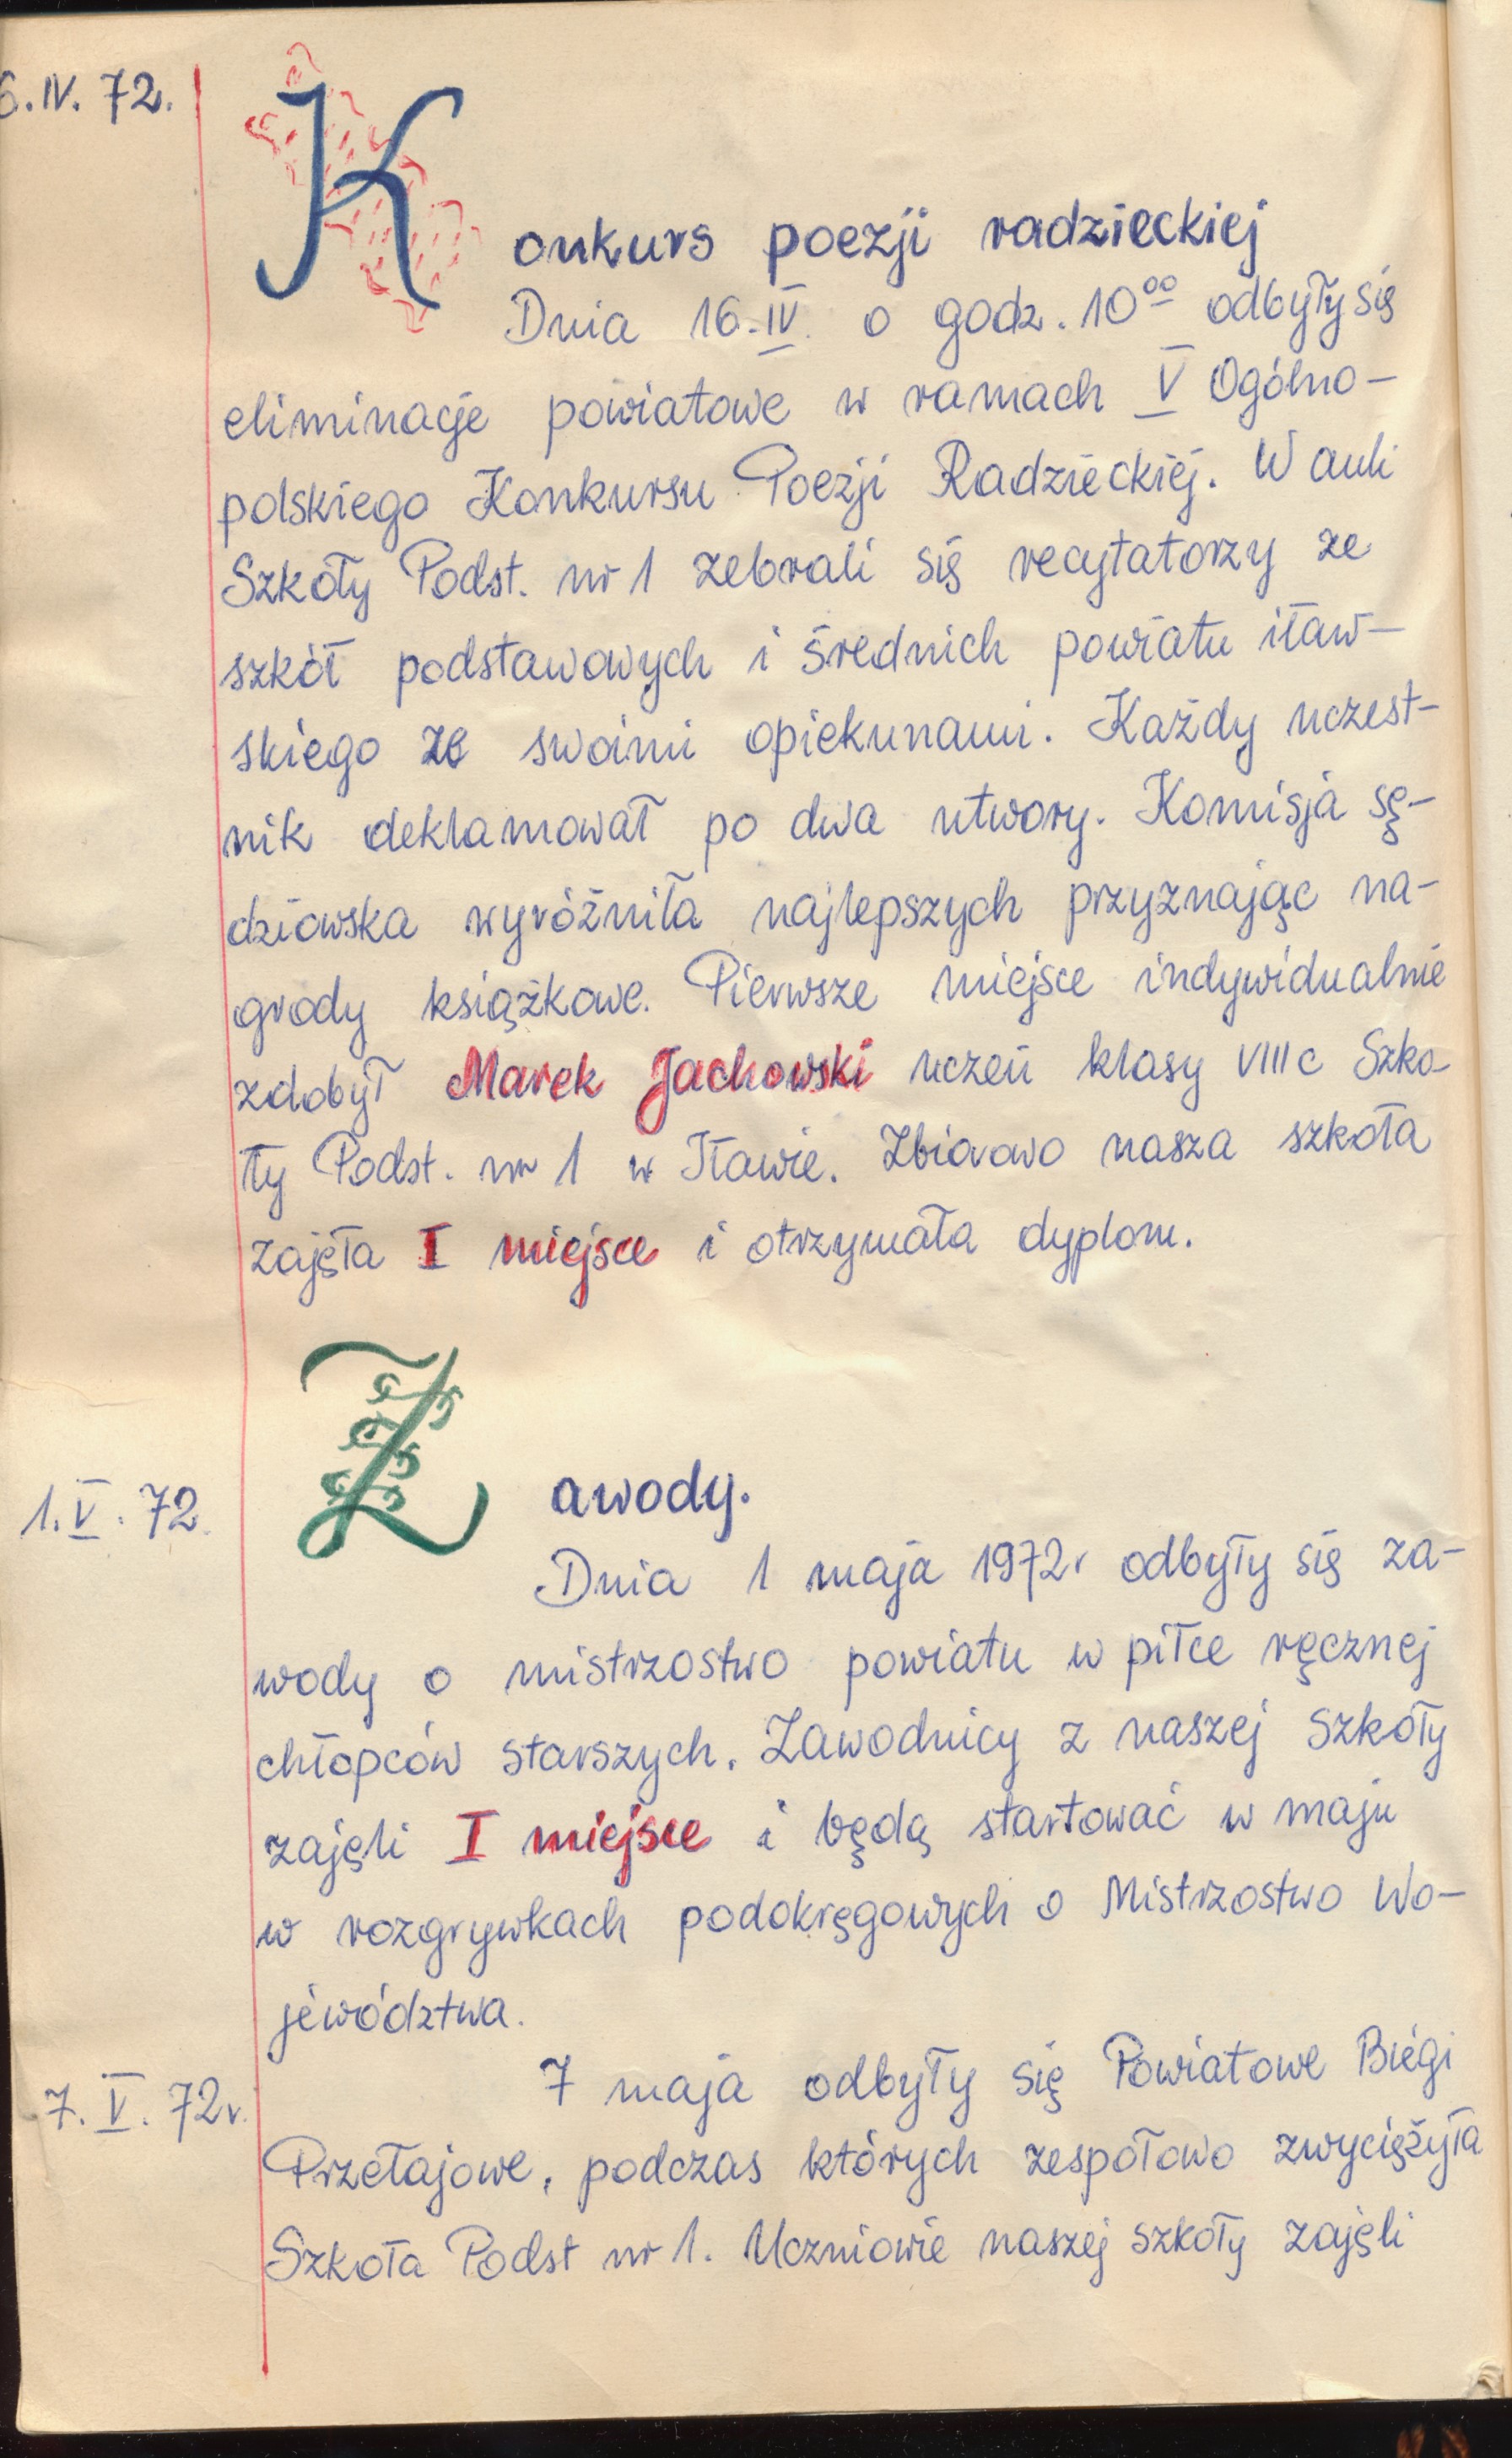 6.IV.72.
Konkurs poezji radzieckiej
Dnia 16.IV. o godz. 10⁰⁰ odbyły się
eliminacje powiatowe w ramach V Ogólno-
polskiego Konkursu Poezji Radzieckiej. W auli
Szkoły Podst. nr 1 zebrali się recytatorzy ze
szkół podstawowych i średnich powiatu iław-
skiego ze swoimi opiekunami. Każdy uczest-
nik deklamował po dwa utwory. Komisja sę-
dziowska wyróżniła najlepszych przyznając na-
grody książkowe. Pierwsze miejsce indywidualnie
zdobył Marek Jachowski uczeń klasy VIII c Szko-
ły Podst. nr 1 w Iławie. Zbiorowo nasza szkoła
zajęła I miejsce i otrzymała dyplom.
1.V.72.
Zawody.
Dnia 1 maja 1972r odbyły się za-
wody o mistrzostwo powiatu w piłce ręcznej
chłopców starszych. Zawodnicy z naszej szkoły
zajęli I miejsce i będą startować w maju
w rozgrywkach podokręgowych o Mistrzostwo Wo-
jewództwa.
7.V.72r.
7 maja odbyły się Powiatowe Biegi
Przełajowe, podczas których zespołowo zwyciężyła
Szkoła Podst nr 1. Uczniowie naszej szkoły zajęli